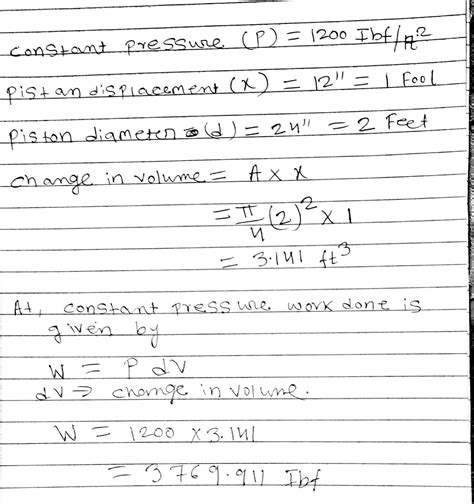 constant pressure (P) = 1200 Ibf/ft²
pistan displacement (x) = 12" = 1 Fool
piston diameter (d) = 24" = 2 Feet
change in volume = A x x
= π/4 (2)² x 1
= 3.141 ft³
At, constant pressure work done is
given by
W = P dV
dV ⇒ change in volume.
W = 1200 x 3.141
= 3769.911 Ibf